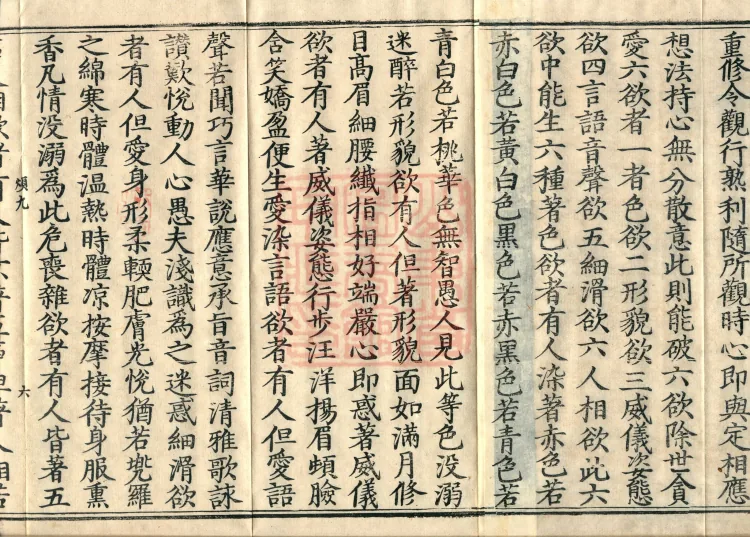 重修令觀行熟利隨所觀時心即與定相應
想法持心無分散意此則能破六欲除世貪
愛六欲者一者色欲二形貌欲三威儀姿態
欲四言語音聲欲五細滑欲六人相欲此六
欲中能生六種著色欲者有人染著赤色若
赤白色若黃白色黑色若赤黑色若青色若
青白色若桃華色無智愚人見此等色没溺
迷醉若形貌欲有人但著形貌面如滿月修
目高眉細腰纖指相好端嚴心即惑著威儀
欲者有人著威儀姿態行步汪洋揚眉頓臉
含笑嬌盈便生愛染言語欲者有人但愛語
聲若聞巧言華説應意承旨音詞清雅歌詠
讃歎悅動人心愚夫淺識爲之迷惑細滑欲
者有人但愛身形柔輭肥膚光悅猶若兠羅
之綿寒時體温熱時體凉按摩接待身服熏
香凡情没溺爲此危喪雜欲者有人皆著五
煩九
六